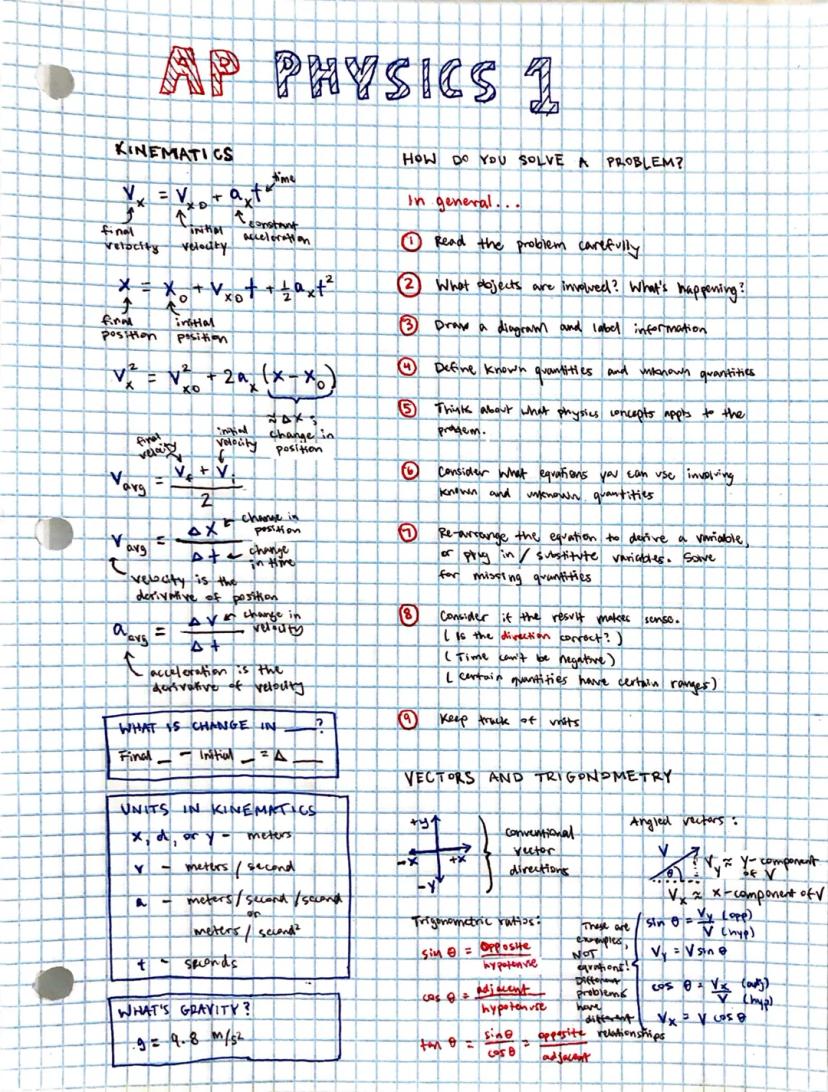 AP PHYSICS 1
KINEMATICS
Vx = Vx0 + axt
time
final velocity
initial velocity
constant acceleration
x = x0 + Vx0 t + 1/2 axt²
final position
initial position
Vx² = Vx0² + 2ax (x - x0)
≈ Δx;
change in
position
final velocity
initial velocity
Vavg = Vf + Vi / 2
Vavg = Δx / Δt
change in position
change in time
velocity is the
derivative of position
aavg = Δv / Δt
change in velocity
acceleration is the
derivative of velocity
WHAT IS CHANGE IN ___?
Final _ - Initial _ = Δ ___
UNITS IN KINEMATICS
x, d, or y - meters
v - meters/second
a - meters/second/second
or
meters/second²
t - seconds
WHAT'S GRAVITY?
g = 9.8 m/s²
HOW DO YOU SOLVE A PROBLEM?
In general...
1 Read the problem carefully
2 What objects are involved? What's happening?
3 Draw a diagram and label information
4 Define known quantities and unknown quantities
5 Think about what physics concepts apply to the
problem.
6 Consider what equations you can use involving
known and unknown quantities
7 Re-arrange the equation to derive a variable,
or plug in / substitute variables. Solve
for missing quantities
8 Consider if the result makes sense.
(Is the direction correct?)
(Time can't be negative)
(certain quantities have certain ranges)
9 Keep track of units
VECTORS AND TRIGONOMETRY
+y
-x
+x
-y
conventional
vector
directions
Angled vectors:
V
θ
Vy ≈ y-component
of V
Vx ≈ x-component of V
Trigonometric ratios:
sin θ = opposite / hypotenuse
cos θ = adjacent / hypotenuse
tan θ = sinθ / cosθ = opposite / adjacent
These are
examples,
NOT
equations!
Different
problems
have
different
relationships
sin θ = Vy (opp) / V (hyp)
Vy = V sin θ
cos θ = Vx (adj) / V (hyp)
Vx = V cos θ